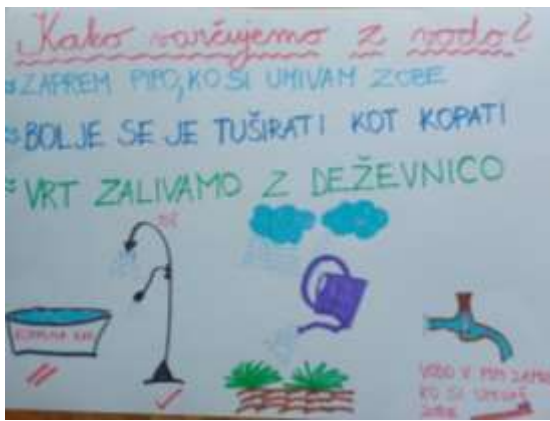 Kako varčujemo z vodo?
ZAPREM PIPO, KO SI UMIVAM ZOBE
BOLJE SE JE TUŠIRATI KOT KOPATI
VRT ZALIVAMO Z DEŽEVNICO
KOPALNA KAD
VODO V PIPI
KO SI UMIVAŠ
ZOBE